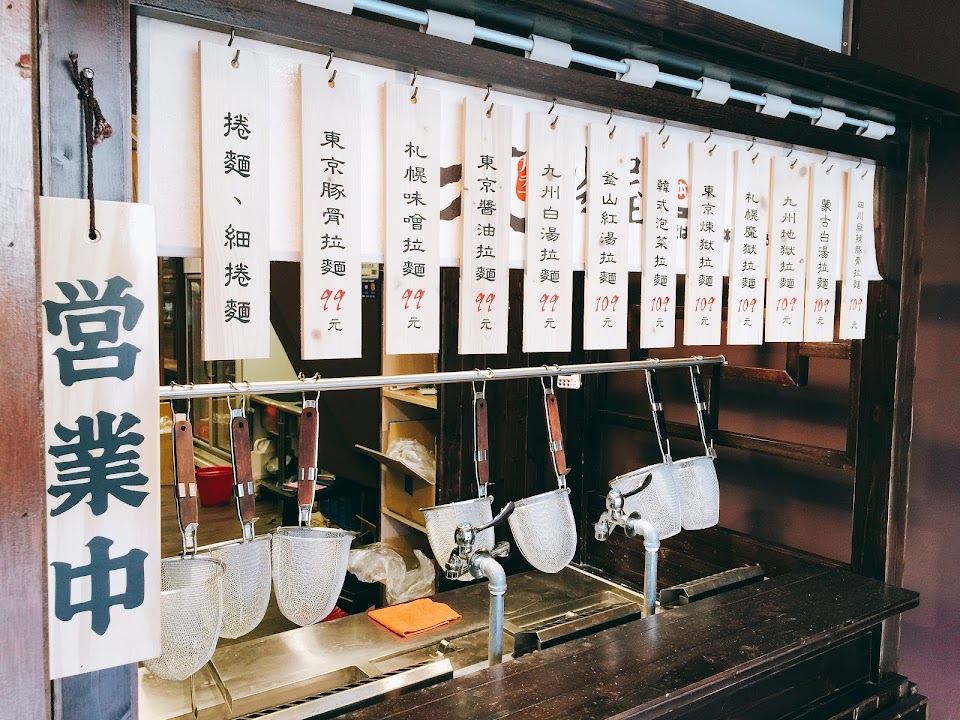 営業中
捲麵、細捲麵
東京豚骨拉麵 99元
札幌味噌拉麵 99元
東京醬油拉麵 99元
九州白湯拉麵 99元
釜山紅湯拉麵 109元
韓式泡菜拉麵 109元
東京煉獄拉麵 109元
札幌魔獄拉麵 109元
九州地獄拉麵 109元
蒙古白湯拉麵 109元
四川麻辣豚骨拉麵 109元